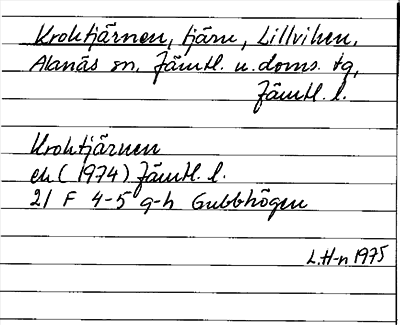 Kroktjärnen, tjärn, Lillviken,
Alanäs sn. Jämtl. n. doms. tg,
Jämtl. l.
Kroktjärnen
ek (1974) Jämtl. l.
21 F 4-5 g-h Gubbhögen
L.H-n 1975